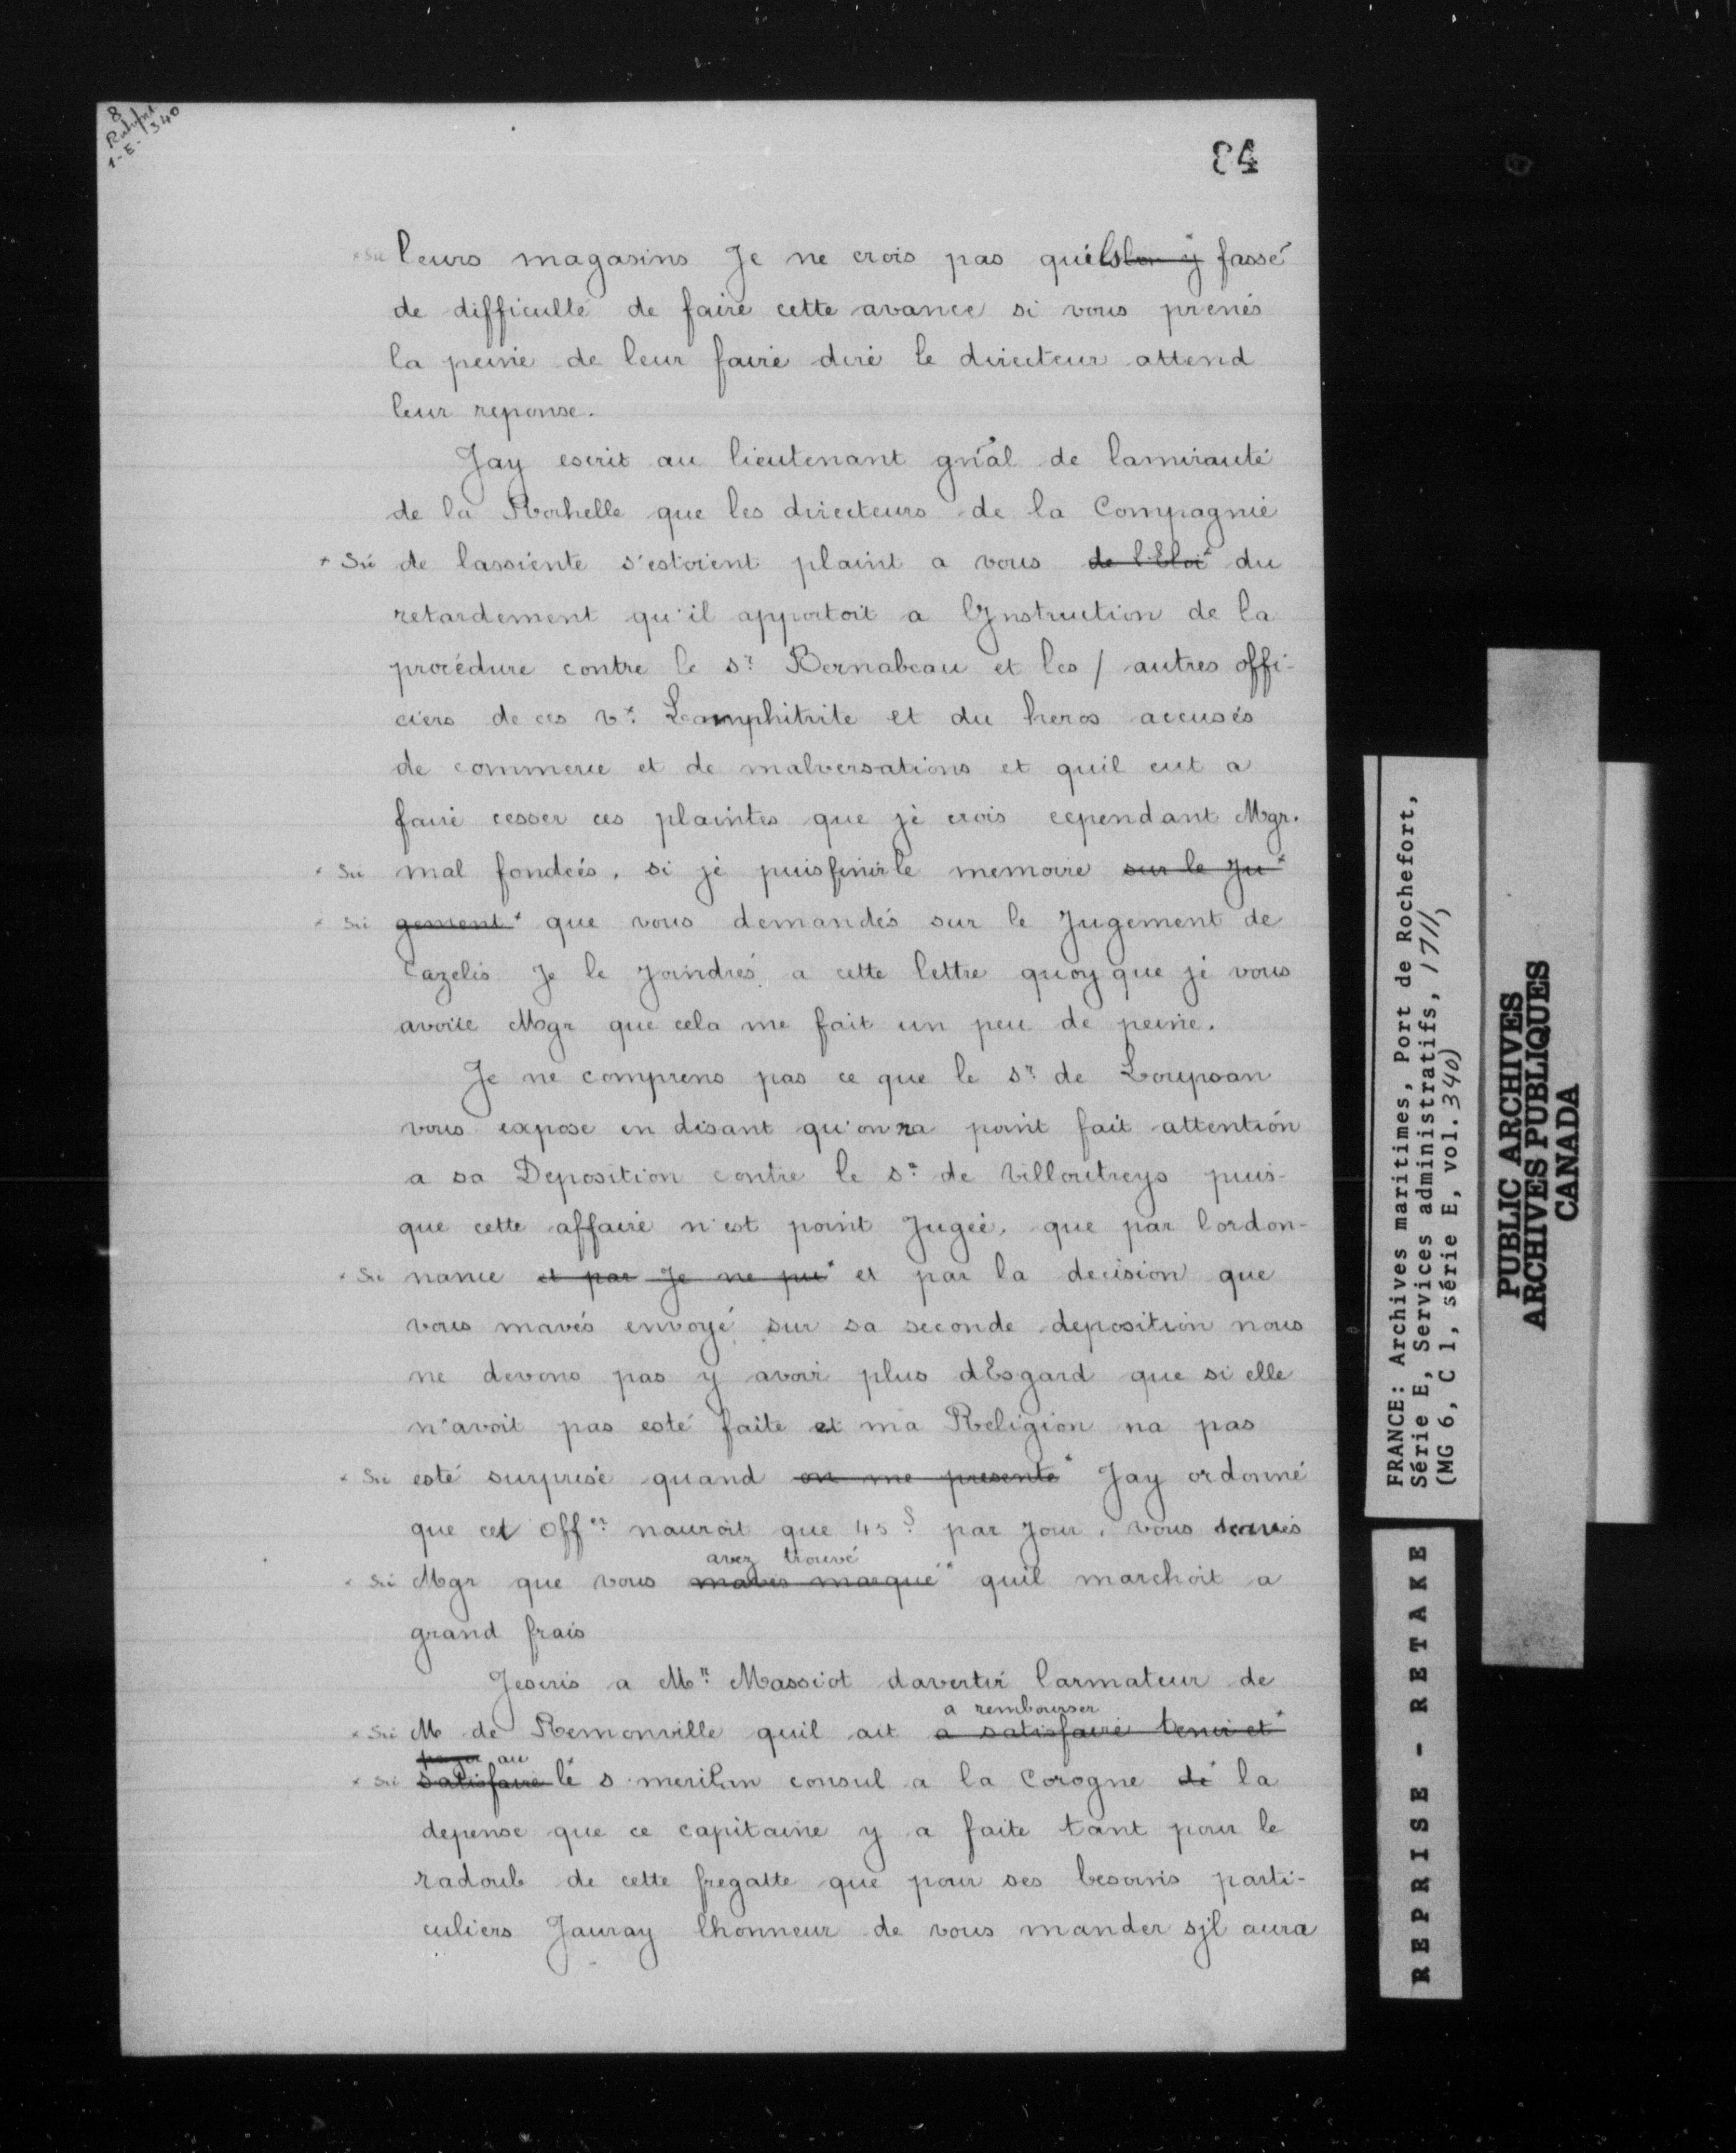 8
Rochefort
1-E-340
84
* Sic leurs magasins Je ne crois pas quils lon y * fassé
de difficulté de faire cette avance si vous prenés
la peine de leur faire dire le directeur attend
leur reponse.
Jay escrit au lieutenant gn'al de lamirauté
de la Rochelle que les directeurs de la Compagnie
* Sic de lassiente s'estoient plaint a vous de l'Eloi * du
retardement qu'il apportoit a lJnstruction de la
procédure contre le sr. Bernabeau et les / autres offi-
ciers de ces vx. Lamphitrite et du heros accusés
de commerce et de malversations et quil eut a
faire cesser ces plaintes que je crois cependant Mgr.
* Sic mal fondées. si je puis finir le memoire sur le Ju *
* Sic gement * que vous demandés sur le Jugement de
Cazelis Je le Joindrés a cette lettre quoy que je vous
avoüe Mgr que cela me fait un peu de peine.
Je ne comprens pas ce que le sr. de Loupsan
vous expose en disant qu'on na point fait attention
a sa Deposition contre le sr. de Villoutreys puis-
que cette affaire n'est point Jugée, que par lordon-
* Sic nance et par Je ne pu * et par la decision que
vous mavés envoyé sur sa seconde deposition nous
ne devons pas y avoir plus dEsgard que si elle
n'avoit pas esté faite et ma Religion na pas
* Sic esté surprise quand on me presente * Jay ordonné
que cet Offer nauroit que 45 s. par Jour, vous scavés
avez trouvé
* Sic Mgr que vous mavés marqué * quil marchoit a
grand frais
Jescris a Mr. Massiot davertir larmateur de
a rembourser
* Sic M de Remonville quil ait a satisfaire tenir et *
payer au
* Sic satisfaire lé s meritan consul a la Corogne de la
depense que ce capitaine y a faite tant pour le
radoub de cette fregatte que pour ses besoins parti-
culiers Jauray lhonneur de vous mander sjl aura
FRANCE: Archives maritimes, Port de Rochefort,
Série E, Services administratifs, 1711,
(MG 6, C 1, série E, vol. 340)
PUBLIC ARCHIVES
ARCHIVES PUBLIQUES
CANADA
REPRISE - RETAKE